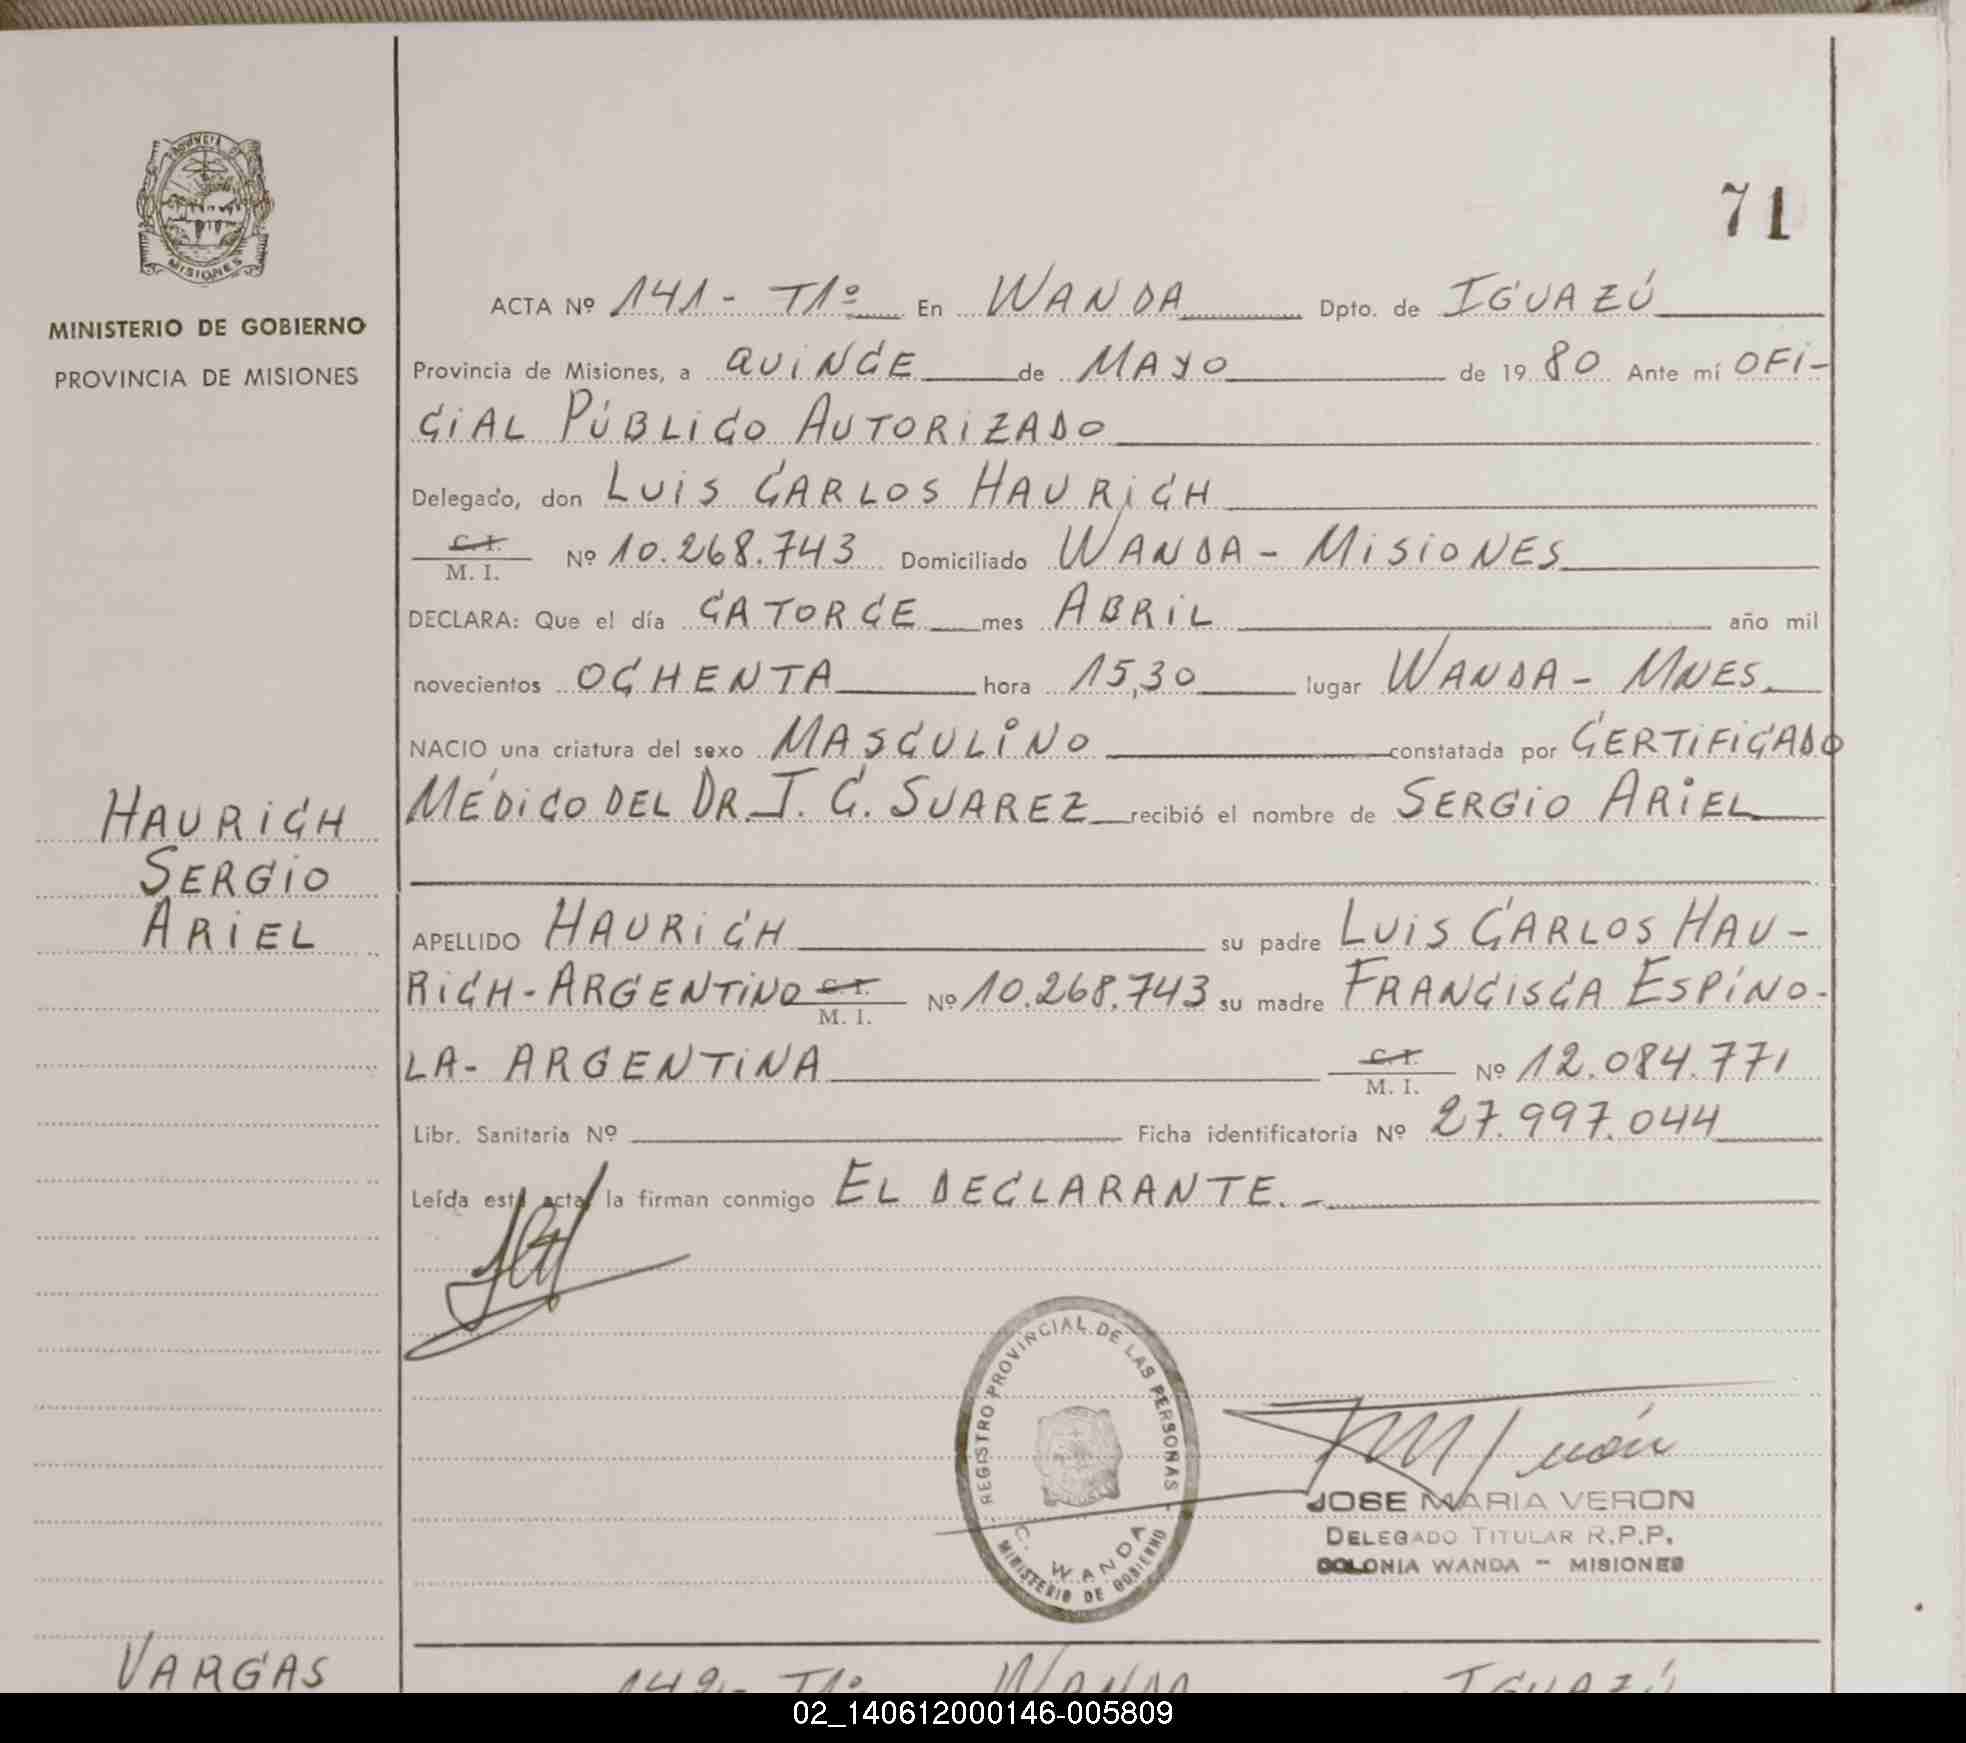 PROVINCIA DE
MISIONES
MINISTERIO DE GOBIERNO
PROVINCIA DE MISIONES
HAURICH
SERGIO
ARIEL
71
ACTA Nº 141 - T1º En WANDA Dpto. de IGUAZÚ
Provincia de Misiones, a QUINCE de MAYO de 1980 Ante mí OFI-
CIAL PÚBLICO AUTORIZADO
Delegado, don LUIS CARLOS HAURICH
C. I.
M. I. Nº 10.268.743 Domiciliado WANDA - MISIONES
DECLARA: Que el día CATORCE mes ABRIL año mil
novecientos OCHENTA hora 15,30 lugar WANDA - MNES.
NACIO una criatura del sexo MASCULINO constatada por CERTIFICADO
MÉDICO DEL DR. J. C. SUAREZ recibió el nombre de SERGIO ARIEL
APELLIDO HAURICH su padre LUIS CARLOS HAU-
RICH - ARGENTINO C. I. M. I. Nº 10.268.743 su madre FRANCISCA ESPÍNO-
LA - ARGENTINA C. I. M. I. Nº 12.084.771
Libr. Sanitaria Nº Ficha identificatoria Nº 27.997.044
Leída esta acta, la firman conmigo EL DECLARANTE. -
REGISTRO PROVINCIAL DE LAS PERSONAS -
C. WANDA
MINISTERIO DE GOBIERNO
JOSE MARIA VERON
DELEGADO TITULAR R.P.P.
COLONIA WANDA - MISIONES
VARGAS
142 - T1º WANDA IGUAZÚ
02_140612000146-005809